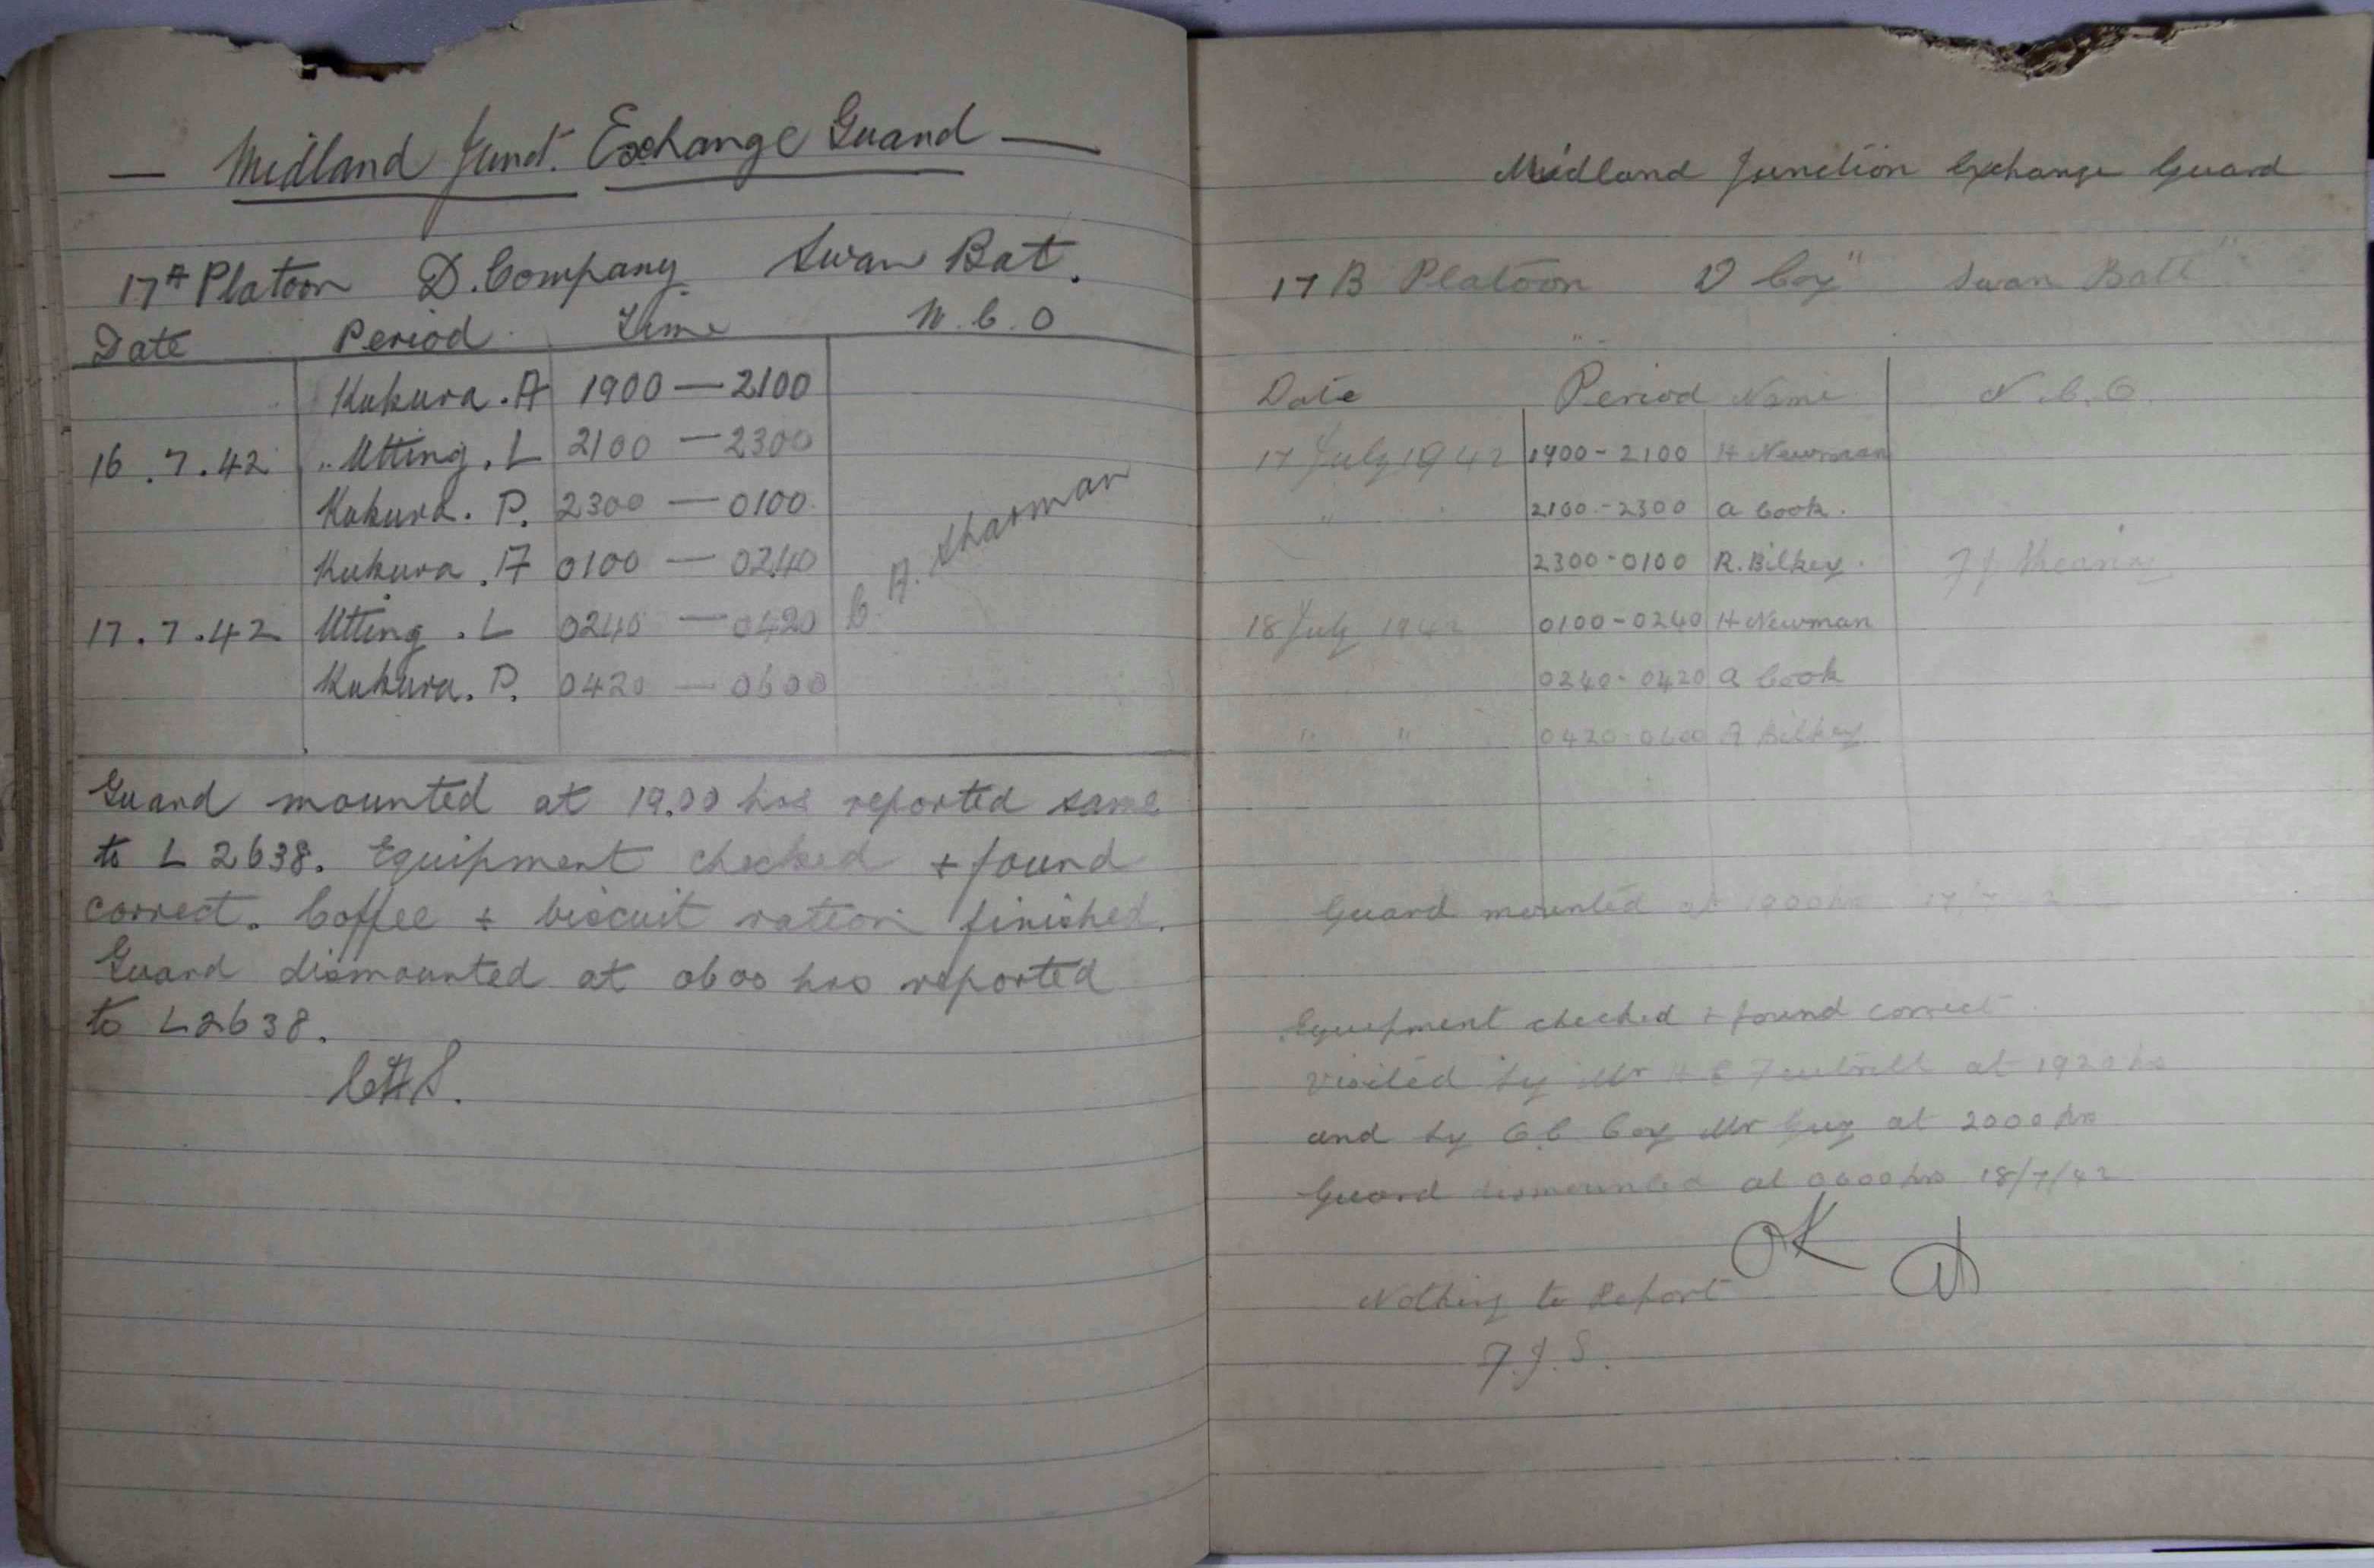 — Midland Junct. Exchange Guard —
17A Platoon D. Company Swan Bat.
Date Period Time N.C.O
Kukura . A 1900 — 2100
16 . 7 . 42 " Utting . L 2100 — 2300
Kukura . P. 2300 — 0100
Kukura . A 0100 — 0240
17 . 7 . 42 Utting . L 0240 — 0420
C. A. Sharman
Kukura . P. 0420 — 0600
Guard mounted at 19.00 hrs reported same
to L 2638. Equipment checked + found
correct. Coffee + biscuit ration finished.
Guard dismounted at 0600 hrs reported
to L2638.
CAS.
Midland Junction Exchange Guard
17 B Platoon D Coy" Swan Batt"
Date Period Name N.C.O.
17 July 1942 1900 - 2100 H Newman
" 2100 - 2300 A Cook.
2300 - 0100 R. Bilkey. F J
18 July 1942 0100 - 0240 H Newman
0240 - 0420 A Cook
" " 0420 - 0600 R Bilkey
Guard mounted at 1900 hrs 17
Equipment checked + found correct
Visited by Mr H E at 1920 hrs
and by O.C. Coy Mr Guy at 2000 hrs
Guard dismounted at 0600 hrs 18/7/42
OK
Nothing to Report
F.J.S.